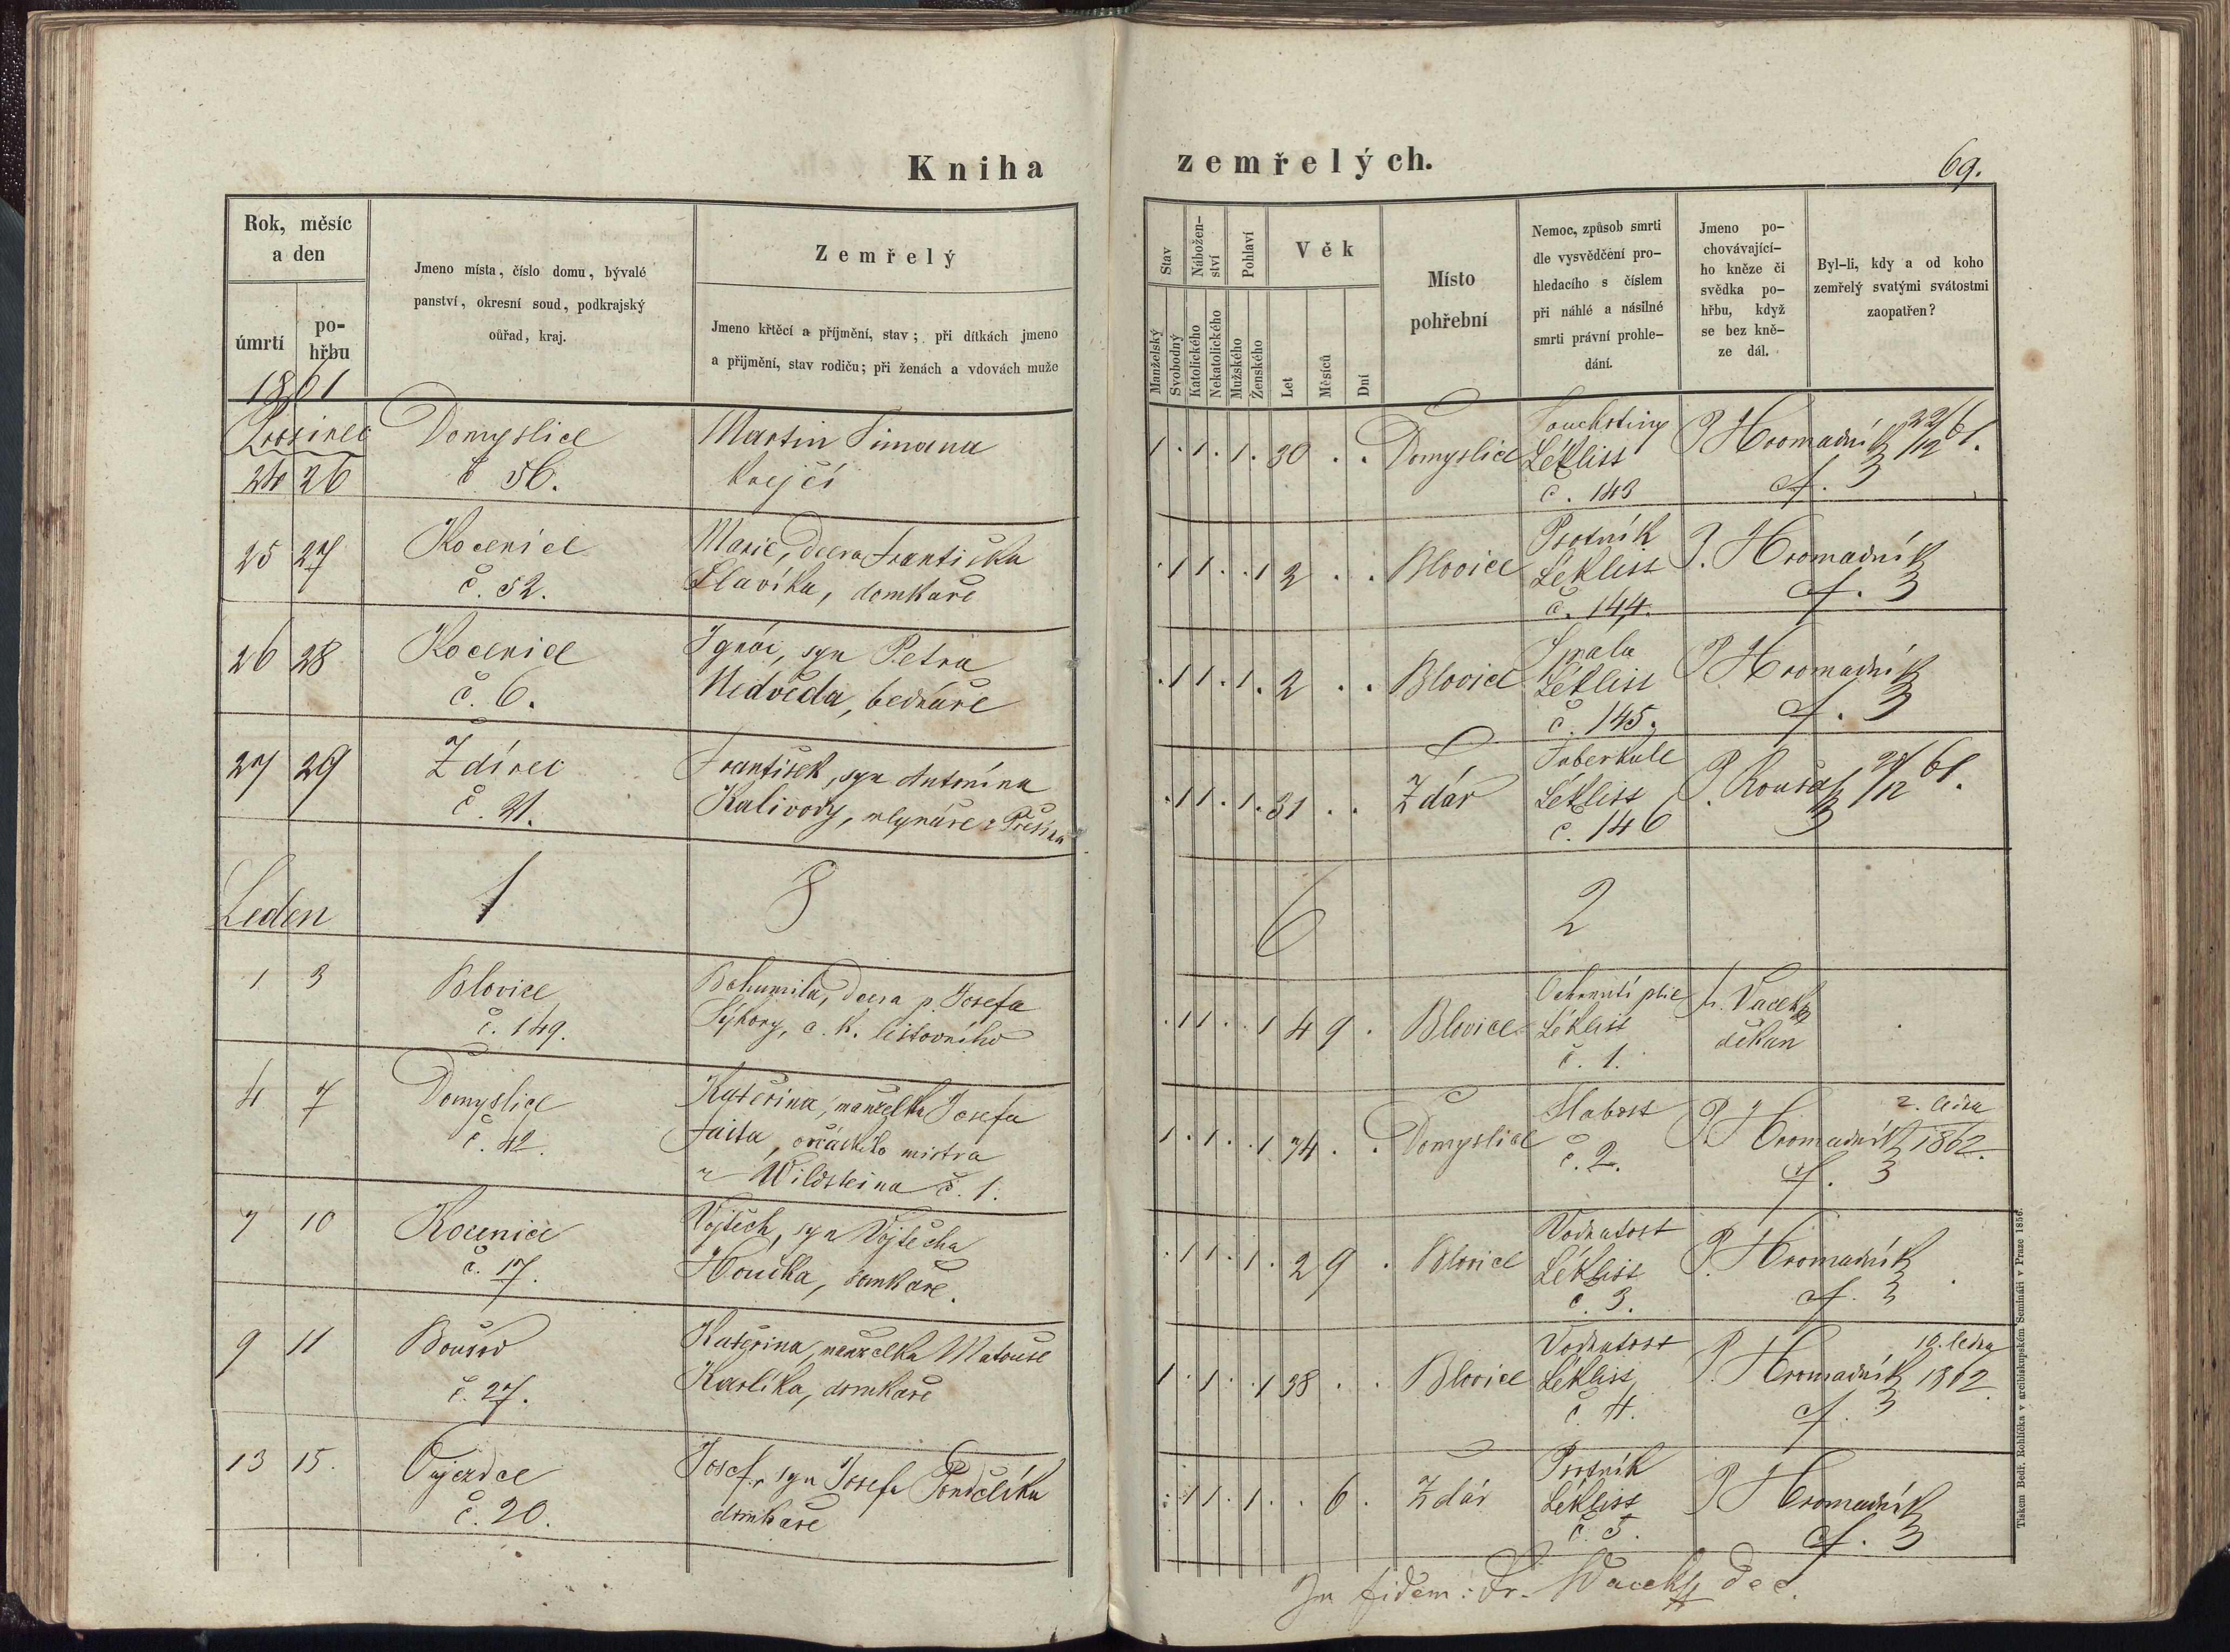 Kniha
zemřelých.
69.
Rok, měsíc
a den
úmrtí
po-
hřbu
Jmeno místa, číslo domu, bývalé
panství, okresní soud, podkrajský
oúřad, kraj.
Zemřelý
Jmeno křtěcí a příjmění, stav; při dítkách jmeno
a přijmění, stav rodiču; při ženách a vdovách muže
Stav
Nábožen-
ství
Pohlaví
Věk
Manželský
Svobodný
Katolického
Nekatolického
Mužského
Ženského
Let
Měsíců
Dní
Místo
pohřební
Nemoc, způsob smrti
dle vysvědčení pro-
hledacího s číslem
při náhlé a násilné
smrti právní prohle-
dání.
Jmeno po-
chovávající-
ho kněze či
svědka po-
hřbu, když
se bez kně-
ze dál.
Byl-li, kdy a od koho
zemřelý svatými svátostmi
zaopatřen?
1861
Prosinec Domyslice Martin Simana
24 26 č 56. Krejčí
1 . 1 . 1 . 30 . . Domyslice Souchotiny P Hromadník 22/12 61.
Lékliss
č. 143 cf.
25 27 Kocenice Marie, dcera Františka
č. 52. Slavíka, domkaře
. 1 1 . . 1 2 . . Blovice Psotník P. Hromadník
Lékliss cf.
č. 144.
26 28 Kocenice Ignác, syn Petra
č. 6. Nedvěda, bednáře
. 1 1 . 1 . 2 . . Blovice Spála P Hromadník
Lékliss cf.
č. 145.
27 29 Zdírec František, syn Antonína
č. 21. Kalivody, mlynáře z Přešína
. 1 1 . 1 . 31 . . Zdár Tuberkule P. Roušal 27/12 61.
Lékliss
č. 146
Leden 1 8 6 2
1 3 Blovice Bohumila, dcera p. Josefa
č. 149. Sýkory, c. k. listovního
. 1 1 . . 1 4 9 . Blovice Ochrnutí plic Fr. Vacek
Lékliss děkan
č. 1.
4 7 Domyslice Kateřina, manželka Josefa
č. 42. Faita, ovčáckého mistra
z Wildsteina č. 1.
1 . 1 . . 1 74 . . Domyslice Slabost P. Hromadník 2. ledna
č. 2. cf. 1862.
7 10 Kocenice Vojtěch, syn Vojtěcha
č. 17. Houska, domkaře.
. 1 1 . 1 . 2 9 . Blovice Vodnatost P. Hromadník
Lékliss cf.
č. 3.
9 11 Boušov Kateřina, manželka Matouše
č. 27. Karlíka, domkaře
1 . 1 . . 1 38 . . Blovice Vodnatost P. Hromadník 10. ledna
Lékliss cf. 1862.
č. 4.
13 15. Oujezdce Josef, syn Josefa Pondělíka
č. 20. domkaře
. 1 1 . 1 . . 6 . Zdár Psotník P Hromadník
Lékliss cf.
č. 5.
In fidem: Fr. Wacek dec.
Tiskem Bedř. Rohlíčka v arcibiskupském Semináři v Praze 1856.